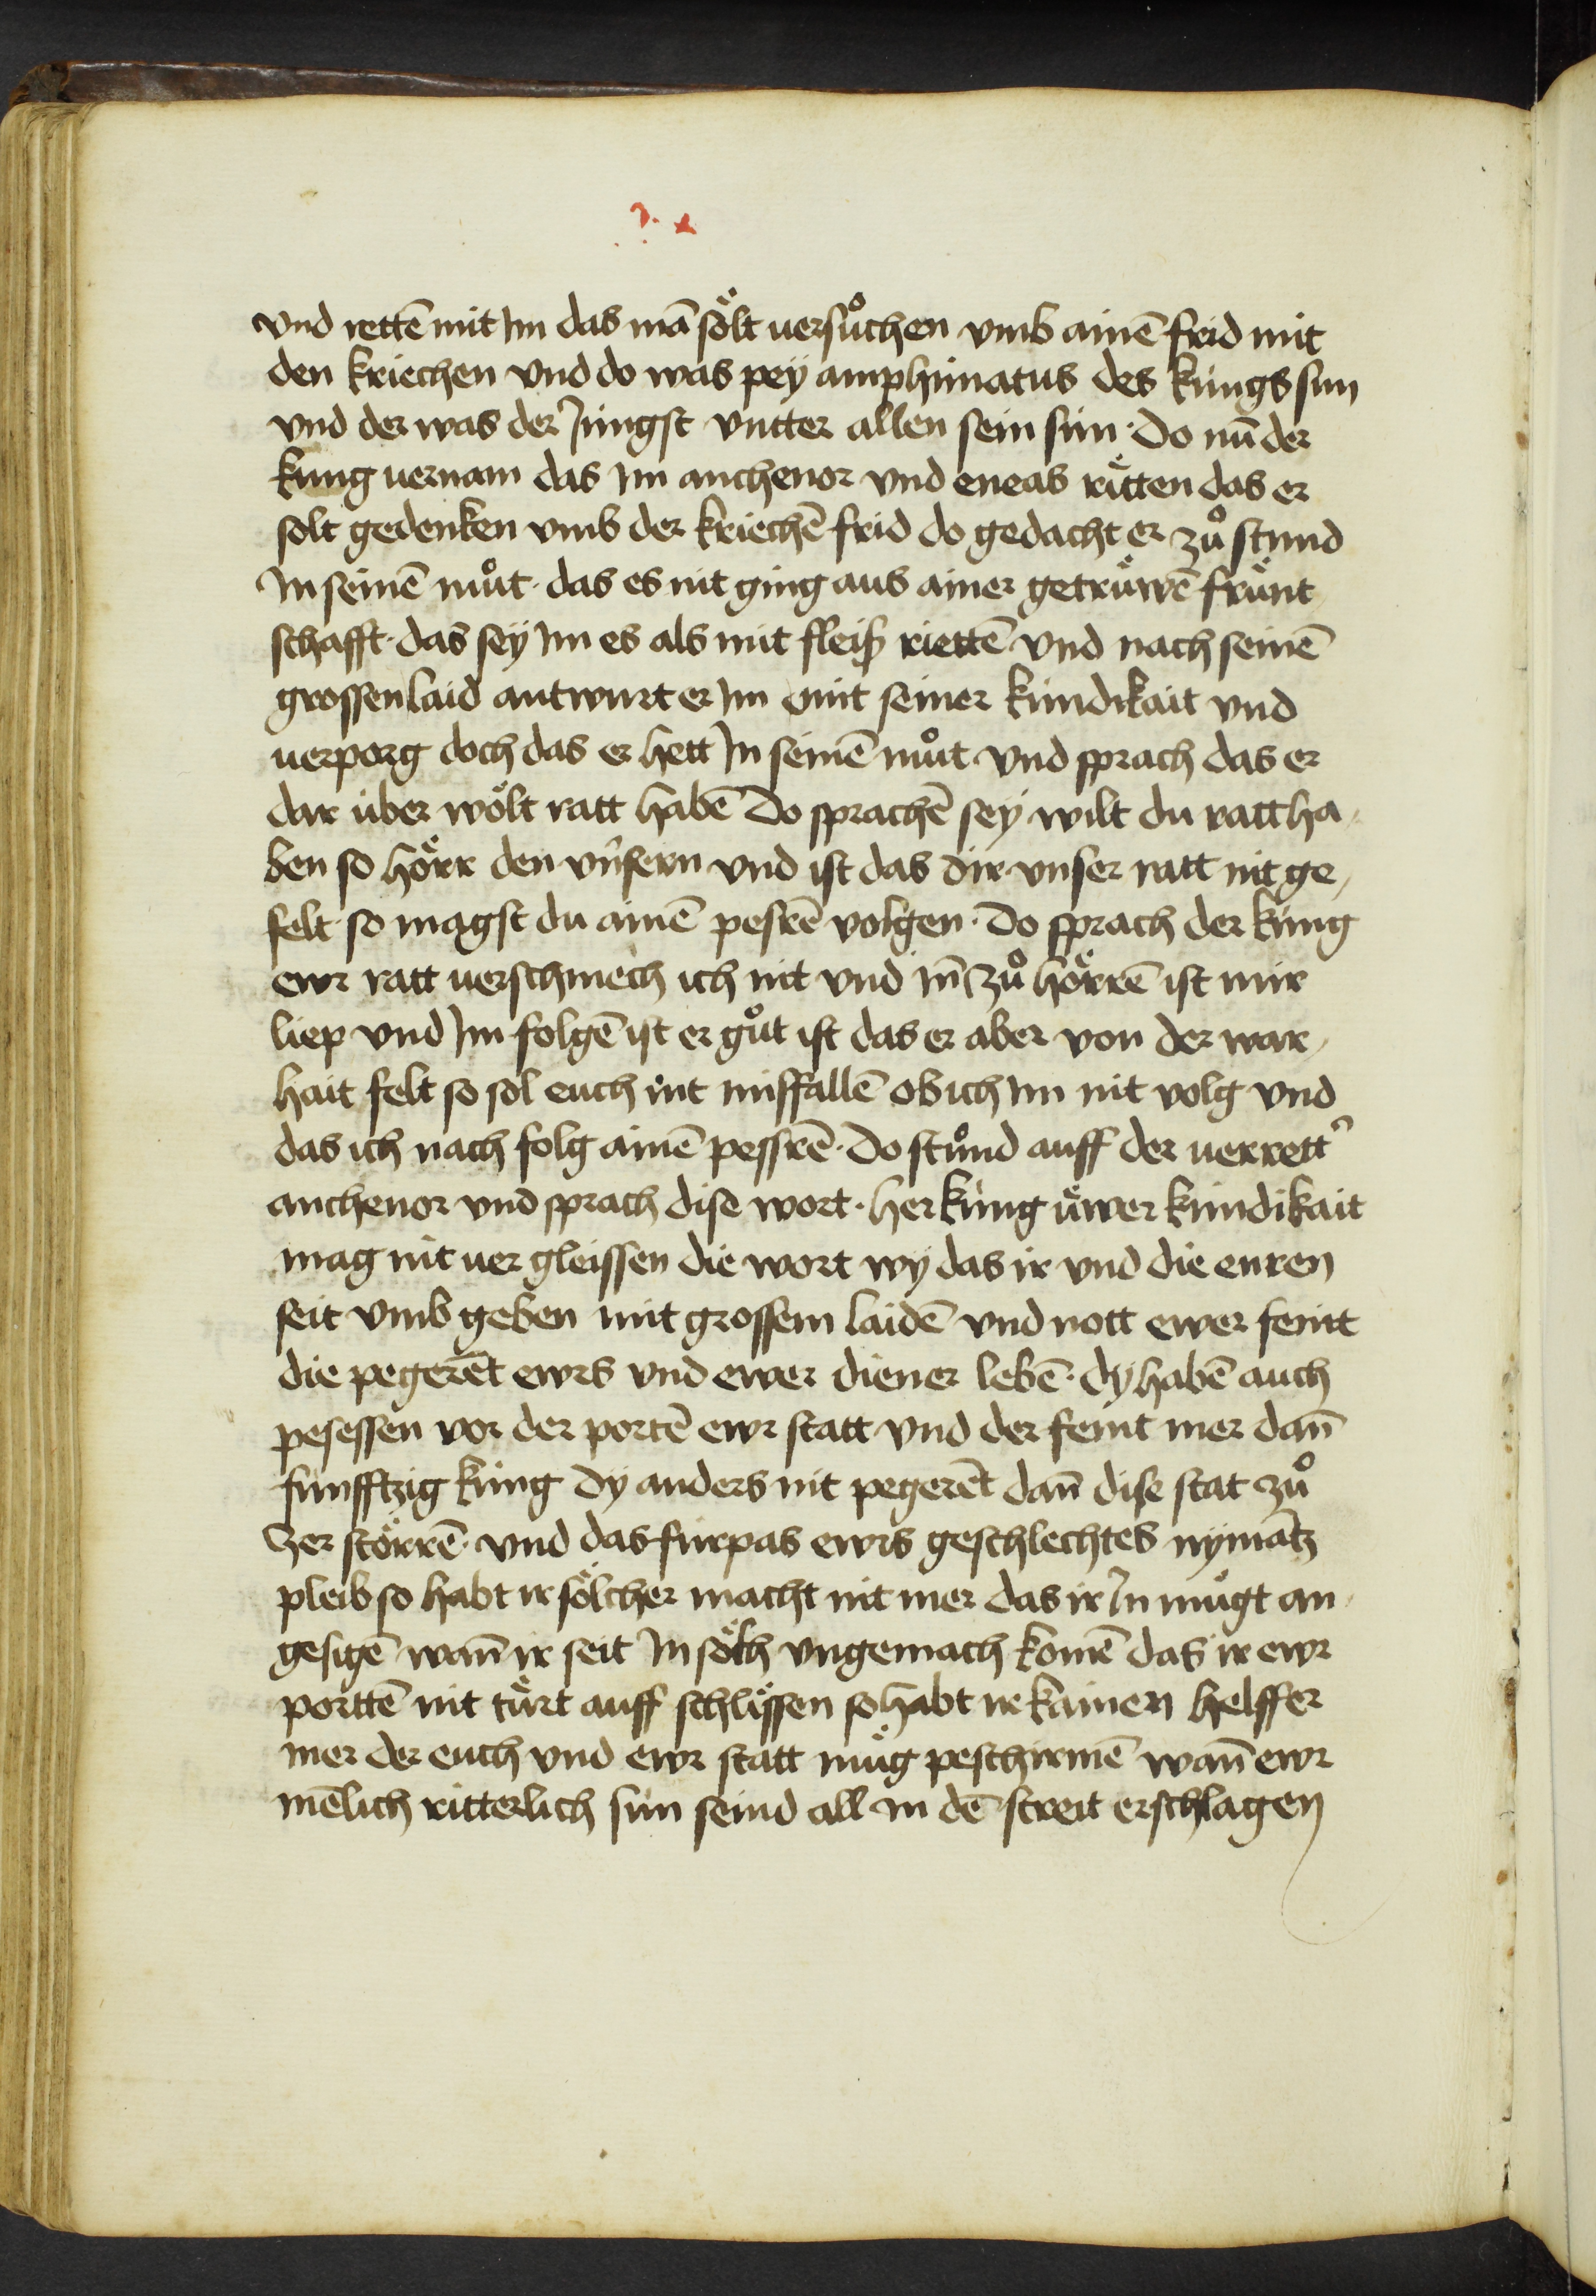 ?. x
vnd rettē mit Im das mā sölt uersůchen vmb ainē frid mit
den kriechen vnd do was peÿ amphimatus des küngs sun
vnd der was der Jüngst vntter allen sein sün · Do nū der
küng uernam das Im anchenor vnd eneas rätten das er
solt gedenken vmb der kriechē frid do gedacht er zů stund
In seinē můt · das es nit ging aus ainer getrüwē frünt
schafft · das seÿ Im es als mit fleiß riettē vnd nach seinē
grossen laid antwurt er Im mit seiner kündikait vnd
uerporg doch das er hett In seinē můt vnd sprach das er
dar über wölt ratt habē Do sprachē seÿ wilt du ratt ha,
ben so hörr den vnsern vnd ist das dir vnser ratt nit ge,
felt so magst du ainē pesrē volgen · Do sprach der küng
ewr ratt uerschmech ich nit vnd In̄ zů hörrē ist mir
liep vnd Im folgē ist er gůt ist das er aber von der war,
hait felt so sol euch nit missfallē ob ich Im nit volg vnd
das ich nach folg ainē pessrē · Do stůnd auff der uerrett'
anchenor vnd sprach dise wort · her küng üwer kündikait
mag nit uer gleissen die wort wÿ das ir vnd die euren
seit vmb geben mit grossem laidē vnd nott ewer feint
die pegerēt ewrs vnd ewer diener lebē · dÿ habē auch
pesessen vor der portē ewr statt vnd der feint mer dan̄
funfftzig küng dÿ anders nit pegerēt dan̄ dise stat zů
zer störrē · vnd das fürpas ewrs geschlechtes nÿmātz
pleib so habt ir sölcher macht nit mer das ir In mügt an,
gesigē wan̄ ir seit In sölch vngemach komē das ir ewr
porttē nit türt auff schlissen so habt ir kainen helffer
mer der euch vnd ewr statt müg peschirmē wan̄ ewr
mēlich ritterlich sün seind all in dē streit erschlagen